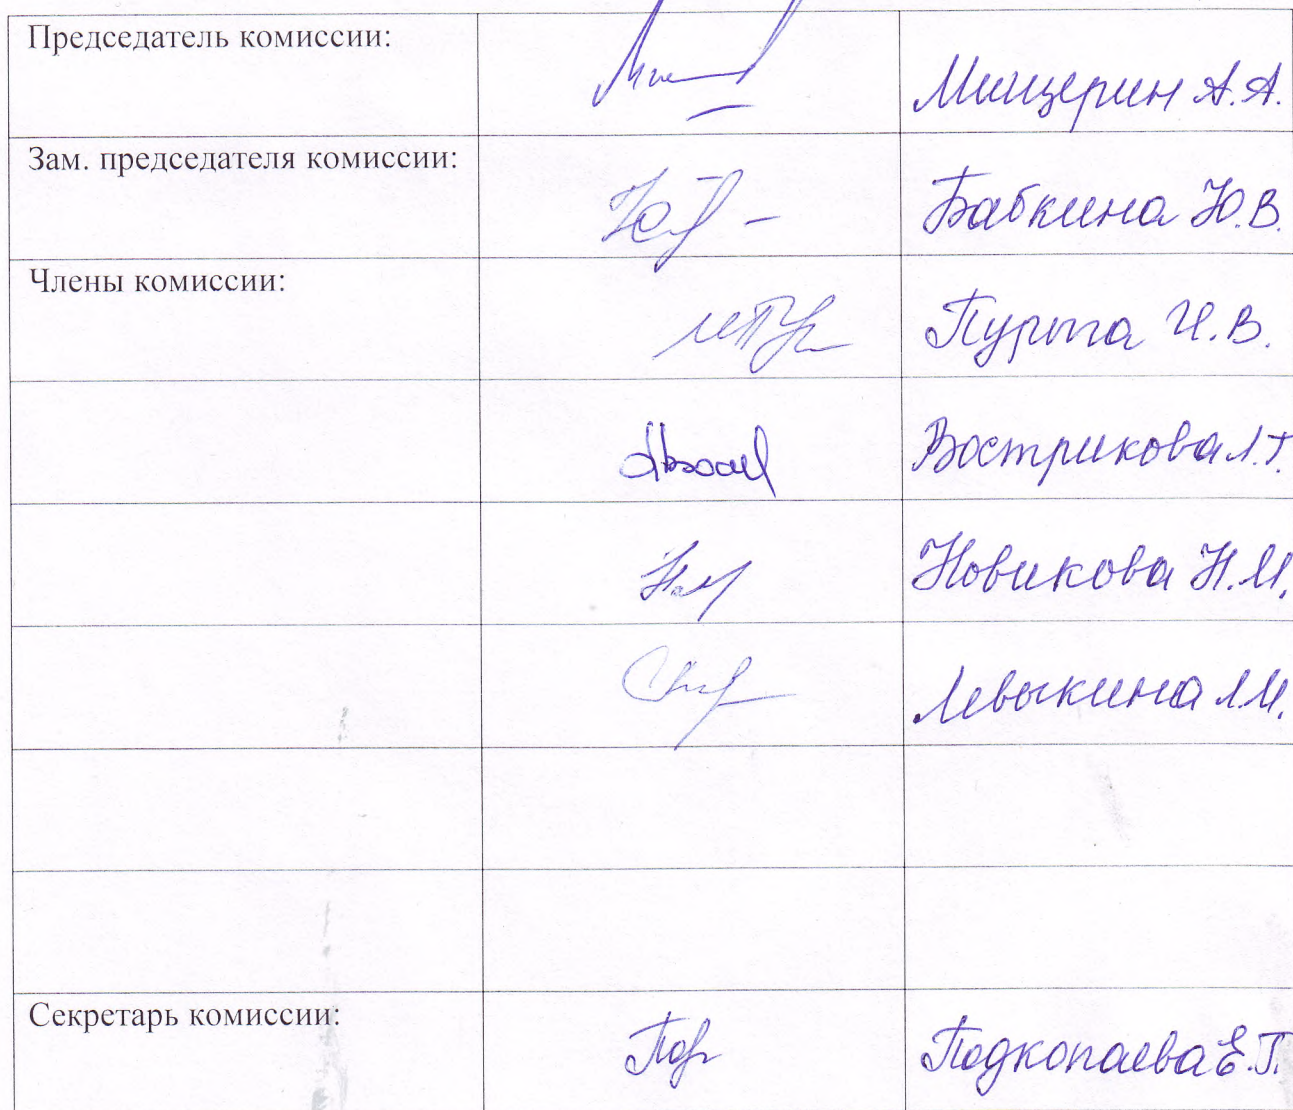 Председатель комиссии:
Мищерин А.А.
Зам. председателя комиссии:
Бабкина Ю.В.
Члены комиссии:
Пурыга И.В.
Вострикова Л.Т.
Новикова Н.М.
Левыкина Л.М.
Секретарь комиссии:
Подкопаева Е.П.